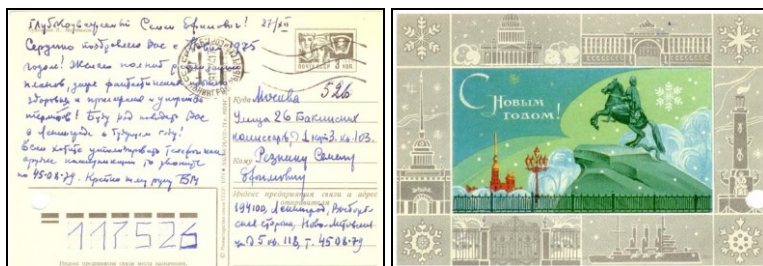 Глубокоуважаемый Семен Ефимович! 27/XII
Сердечно поздравляю Вас с Новым 1975
годом! Желаю полной реализации
планов,
здоровья и
Буду рад повидать Вас
в Ленинграде в будущем году!
Если хотите
то звоните
по 45-08-79. Крепко жму руку
ПОЧТА СССР
ЛЕНИНГРАД
526
Куда Москва
Улица 26 Бакинских
комиссаров, д. 3. кв. 103.
Кому Резнику Семену
Ефимовичу
Индекс предприятия связи и адрес
отправителя
194100, Ленинград, Выборг-
ская сторона, Ново-Литовская
ул. д 5 кв. 118, т. 45 08-79
117526
Индекс предприятия связи места назначения
С Новым
годом!